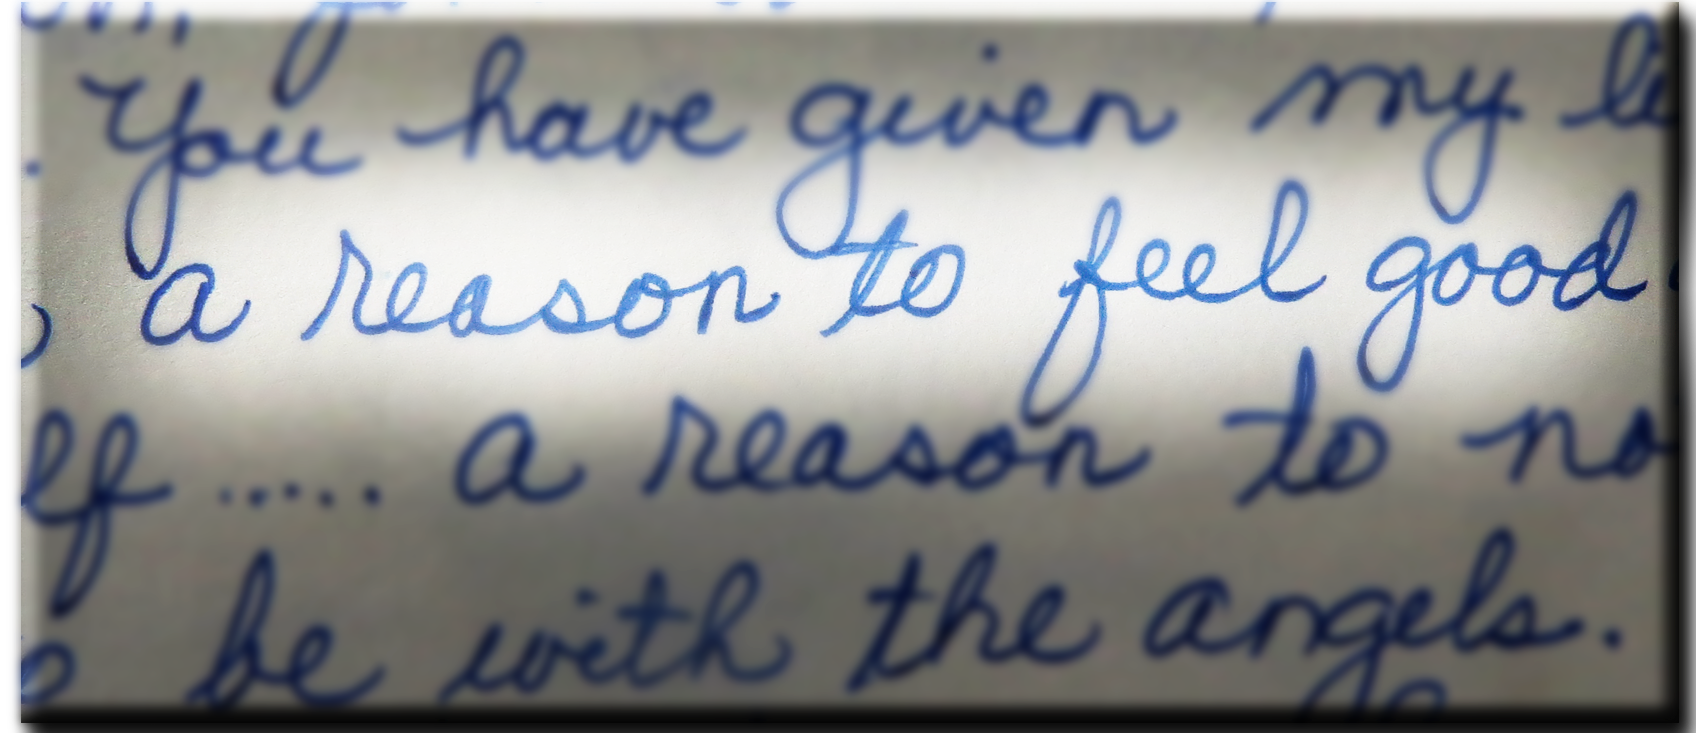 . You have given my li
a reason to feel good
elf ..... a reason to no
be with the angels.